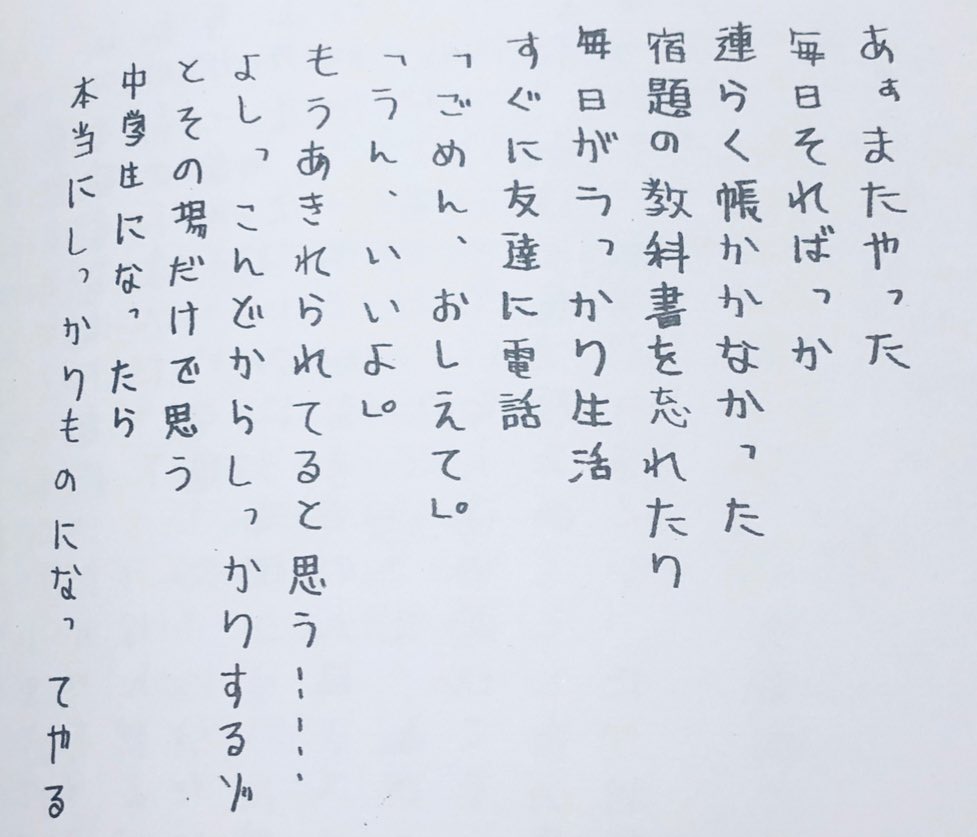 あぁまたやった
毎日そればっか
連らく帳かかなかった
宿題の教科書を忘れたり
毎日がうっかり生活
すぐに友達に電話
「ごめん、おしえて」。
「うん、いいよ」。
もうあきれられてると思う…………
よしっこんどからしっかりするゾ
とその場だけで思う
中学生になったら
本当にしっかりものになってやる